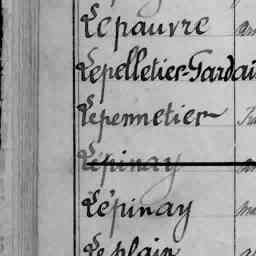 Lepauvre
Lepelletier-Gardai
Lepennetier
Lépinay
Lépinay
Leplain